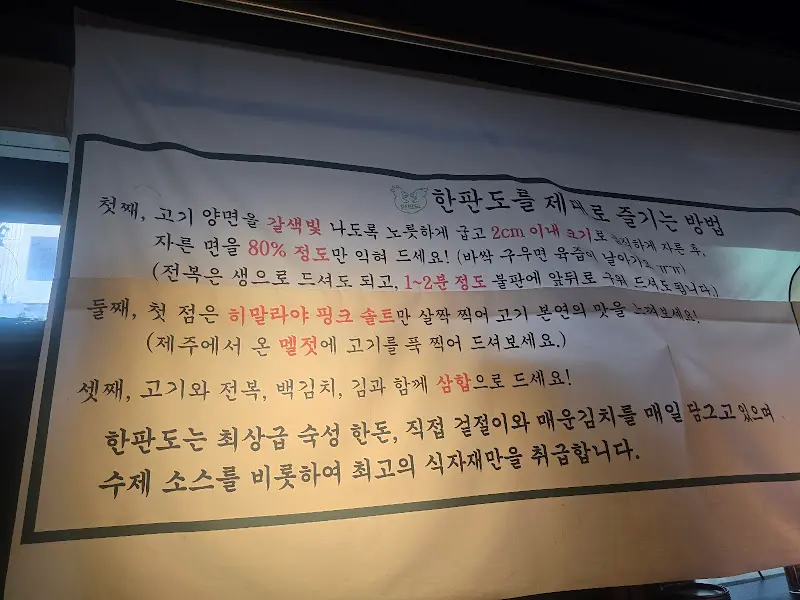 한판도를 제대로 즐기는 방법
첫째, 고기 양면을 갈색빛 나도록 노릇하게 굽고 2cm 이내 크기로 큼직하게 자른 후,
자른 면을 80% 정도만 익혀 드세요! (바싹 구우면 육즙이 날아가요 ㅠㅠ)
(전복은 생으로 드셔도 되고, 1~2분 정도 불판에 앞뒤로 구워 드셔도됩니다.)
둘째, 첫 점은 히말라야 핑크 솔트만 살짝 찍어 고기 본연의 맛을 느껴보세요!
(제주에서 온 멜젓에 고기를 푹 찍어 드셔보세요.)
셋째, 고기와 전복, 백김치, 김과 함께 삼합으로 드세요!
한판도는 최상급 숙성 한돈, 직접 겉절이와 매운김치를 매일 담그고있으며
수제 소스를 비롯하여 최고의 식자재만을 취급합니다.